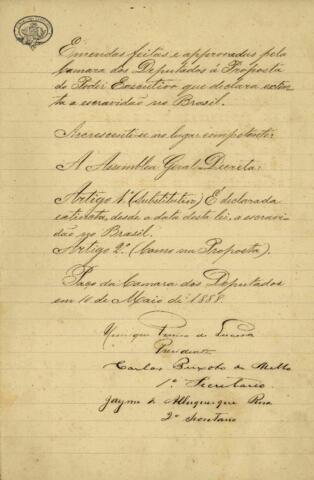 Emendas feitas e approvadas pela
Camara dos Deputados á Proposta
do Poder Executivo que declara extin-
ta a escravidão no Brasil.
Accrescente-se no lugar competente:
A Assemblea Geral Decreta:
Artigo 1º (Substitutivo) É declarada
extincta, desde a data desta lei, a escravi-
dão no Brasil.
Artigo 2º (Como na Proposta).
Paço da Camara dos Deputados
em 10 de Maio de 1888.
Henrique Pereira de Lucena
Presidente
Carlos Peixoto de Mello
1º Secretario
Jayme de Albuquerque Rosa
2º Secretario